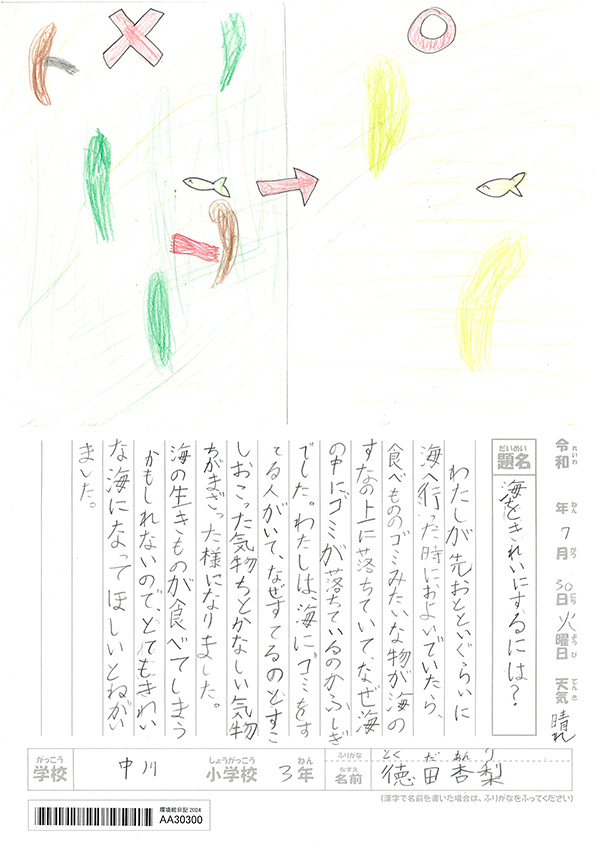 令和 年 7月 30日 火曜日 天気 晴れ
れいわ ねん がつ にち ようび てんき
だいめい
題名
海をきれいにするには?
わたしが先おとといぐらいに
海へ行った時におよいでいたら、
食べもののゴミみたいな物が海の
すなの上に落ちていて、なぜ海
の中にゴミが落ちているのかふしぎ
でした。わたしは、海に、ゴミをす
てる人がいて、なぜすてるのとすこ
しおこった気物ちとかなしい気物
ちがまざった様になりました。
海の生きものが食べてしまう
かもしれないので、とてもきれい
な海になってほしいとねがい
ました。
がっこう
学校
中川
しょうがっこう
小学校
3年
ねん
ふりがな
とくだ あんり
なまえ
名前
徳田杏梨
(漢字で名前を書いた場合は、ふりがなをふってください)
環境絵日記 2024
AA30300